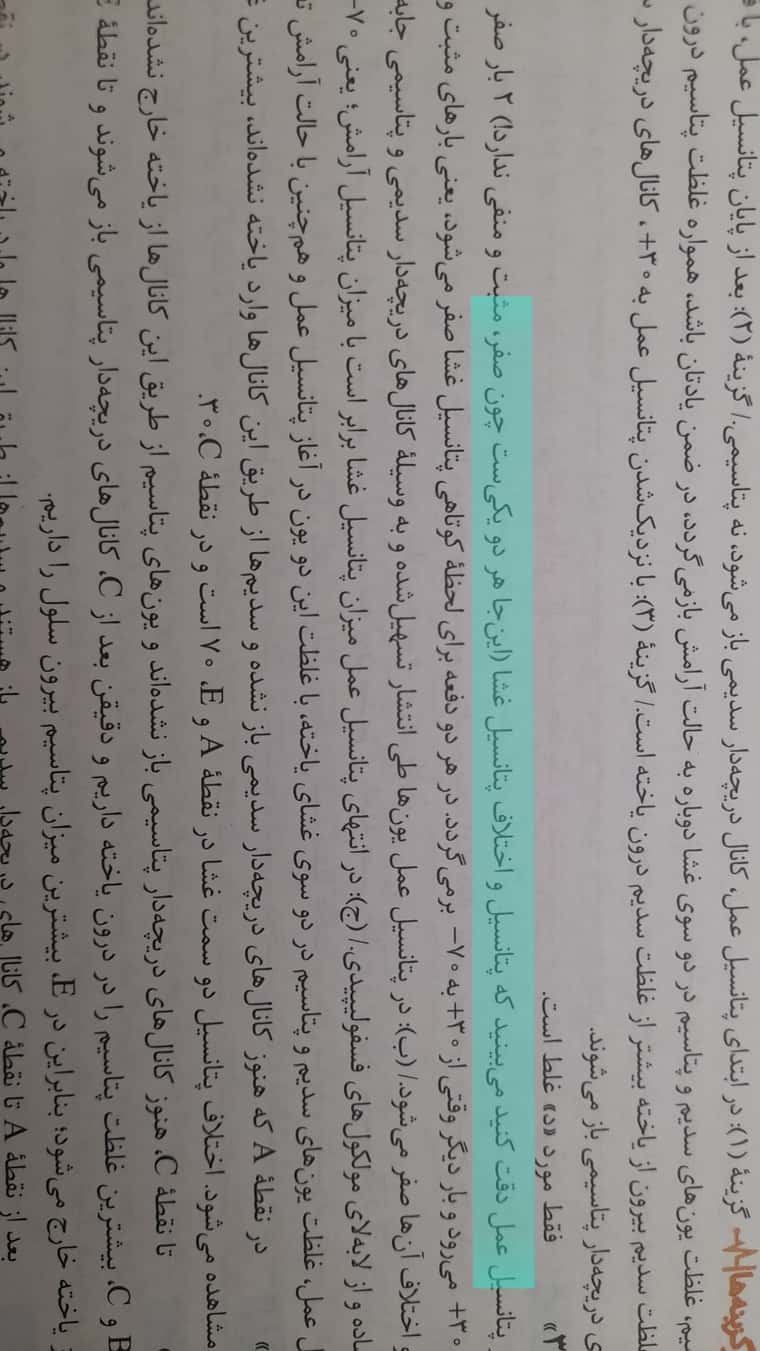 گزینه‌ها/ گزینهٔ (۱): در ابتدای پتانسیل عمل، کانال دریچه‌دار سدیمی باز می‌شود، نه پتاسیمی./ گزینهٔ (۲): بعد از پایان پتانسیل عمل، با
غلظت یون‌های سدیم و پتاسیم در دو سوی غشا دوباره به حالت آرامش بازمی‌گردد، در ضمن یادتان باشد، همواره غلظت پتاسیم درون
غلظت سدیم بیرون از یاخته بیشتر از غلظت سدیم درون یاخته است./ گزینهٔ (۳): با نزدیک‌شدن پتانسیل عمل به ۳۰+، کانال‌های دریچه‌دار
ی دریچه‌دار پتاسیمی باز می‌شوند.
«۳ فقط مورد «د» غلط است.
پتانسیل عمل دقت کنید می‌بینید که پتانسیل و اختلاف پتانسیل غشا (این‌جا هر دو یکی‌ست چون صفر، مثبت و منفی ندارد!) ۲ بار صفر
۳۰+ می‌رود و بار دیگر وقتی از ۳۰+ به ۷۰− برمی‌گردد. در هر دو دفعه برای لحظهٔ کوتاهی پتانسیل غشا صفر می‌شود، یعنی بارهای مثبت و
و اختلاف آن‌ها صفر می‌شود./ (ب): در پتانسیل عمل یون‌ها طی انتشار تسهیل‌شده و به وسیلهٔ کانال‌های دریچه‌دار سدیمی و پتاسیمی جابه
و از لابه‌لای مولکول‌های فسفولیپیدی./ (ج): در انتهای پتانسیل عمل میزان پتانسیل غشا برابر است با میزان پتانسیل آرامش؛ یعنی ۷۰−
عمل، غلظت یون‌های سدیم و پتاسیم در دو سوی غشای یاخته، با غلظت این دو یون در آغاز پتانسیل عمل و هم‌چنین با حالت آرامش
« در نقطهٔ A که هنوز کانال‌های دریچه‌دار سدیمی باز نشده و سدیم‌ها از طریق این کانال‌ها وارد یاخته نشده‌اند، بیشترین
مشاهده می‌شود. اختلاف پتانسیل دو سمت غشا در نقطهٔ A و E، ۷۰ است و در نقطهٔ C، ۳۰.
تا نقطهٔ C، هنوز کانال‌های دریچه‌دار پتاسیمی باز نشده‌اند و یون‌های پتاسیم از طریق این کانال‌ها از یاخته خارج نشده‌اند
B و C، بیشترین غلظت پتاسیم را در درون یاخته داریم و دقیقن بعد از C، کانال‌های دریچه‌دار پتاسیمی باز می‌شوند و تا نقطهٔ E
یاخته خارج می‌شود؛ بنابراین در E، بیشترین میزان پتاسیم بیرون سلول را داریم.
بعد از نقطهٔ A تا نقطهٔ C، کانال‌های دریچه‌دار سدیمی باز هستند و سدیم‌ها از طریق این کانال‌ها وارد یاخته می‌شوند،